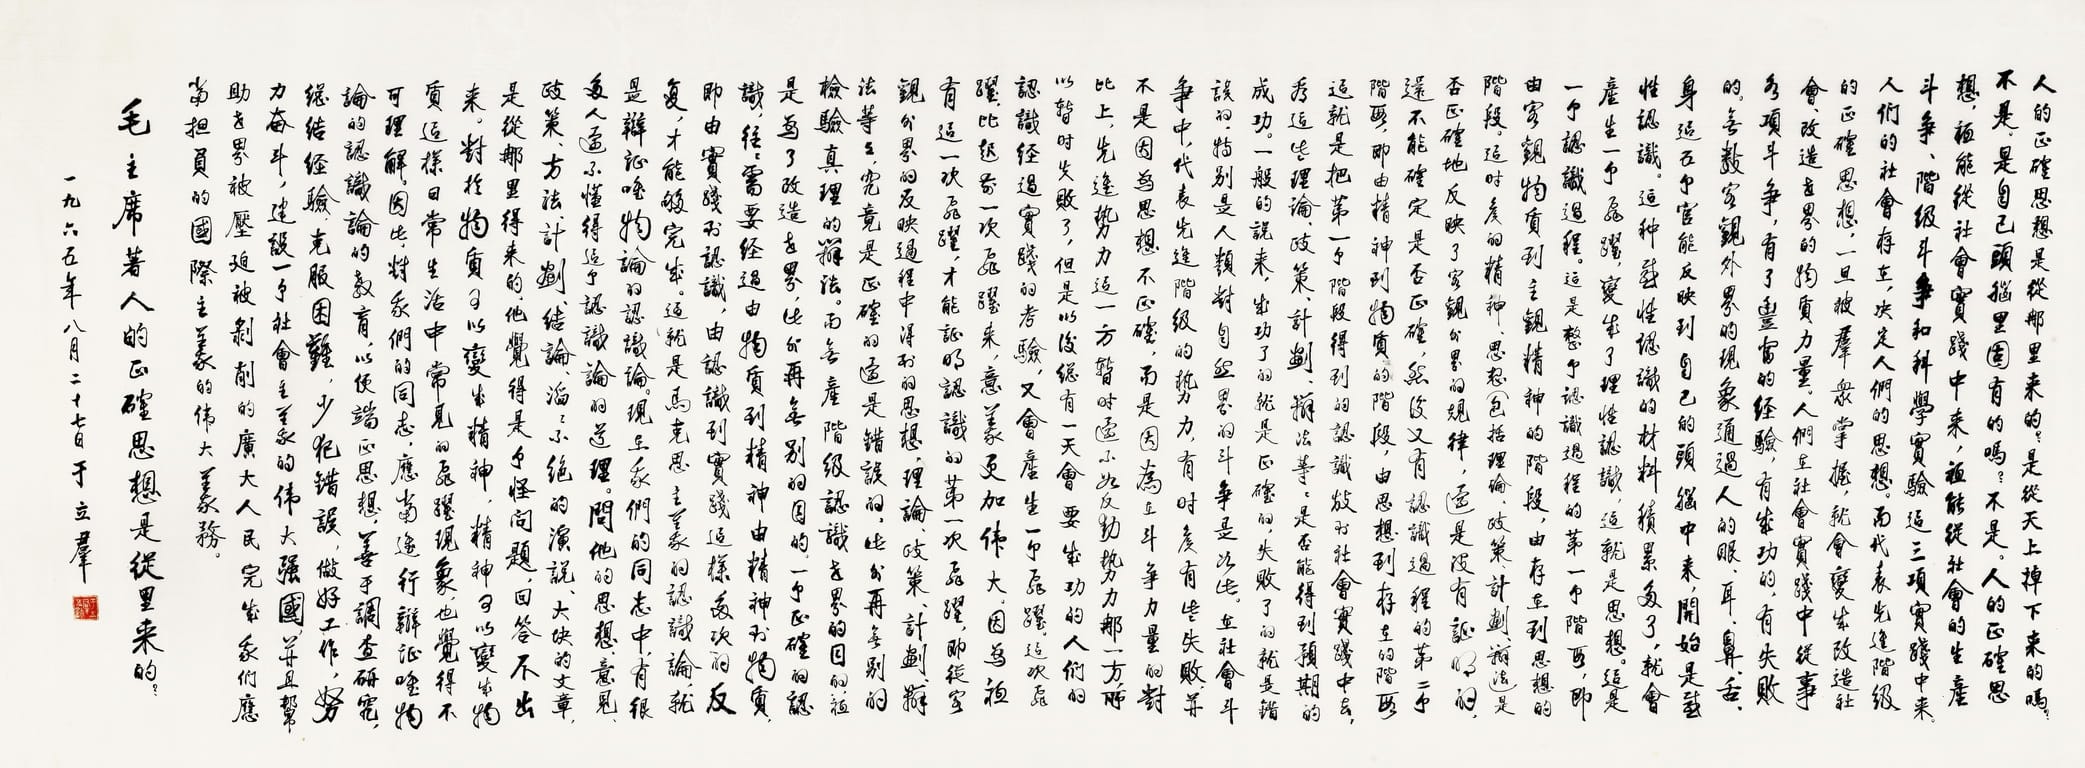 人的正確思想是從那里来的？是從天上掉下来的嗎？
不是。是自己頭腦里固有的嗎？不是。人的正確思
想，祗能從社會實踐中来，祗能從社會的生產
斗争、階級斗争和科學實驗這三項實踐中来。
人們的社會存在，决定人們的思想。而代表先進階級
的正確思想，一旦被羣衆掌握，就會變成改造社
會、改造世界的物質力量。人們在社會實踐中從事
各項斗争，有了豐富的经驗，有成功的，有失敗
的。無數客觀外界的現象通過人的眼、耳、鼻、舌、
身這五个官能反映到自己的頭腦中来，開始是感
性認識。這种感性認識的材料積累多了，就會
產生一个飛躍，變成了理性認識，這就是思想。這是
一个認識過程。這是整个認識過程的第一个階段，即
由客觀物質到主觀精神的階段，由存在到思想的
階段。這时候的精神、思想（包括理論、政策、計劃、辦法）是
否正確地反映了客觀外界的規律，還是没有証明的，
還不能確定是否正確，然後又有認識過程的第二个
階段，即由精神到物質的階段，由思想到存在的階段，
這就是把第一个階段得到的認識放到社會實踐中去，
看這些理論、政策、計劃、辦法等〻是否能得到預期的
成功。一般的說来，成功了的就是正確的，失敗了的就是錯
誤的，特别是人類對自然界的斗争是如此。在社會斗
争中，代表先進階級的勢力，有时候有些失敗，并
不是因為思想不正確，而是因為在斗争力量的對
比上，先進勢力這一方暂时還不如反動勢力那一方，所
以暂时失敗了，但是以後總有一天會要成功的。人們的
認識经過實踐的考驗，又會產生一个飛躍。這次飛
躍，比起前一次飛躍来，意義更加偉大。因為祗
有這一次飛躍，才能証明認識的第一次飛躍，即從客
觀外界的反映過程中得到的思想、理論、政策、計劃、辦
法等〻，究竟是正確的還是錯誤的，此外再無别的
檢驗真理的辦法。而無產階級認識世界的目的，祗
是為了改造世界，此外再無别的目的。一个正確的認
識，往〻需要经過由物質到精神，由精神到物質，
即由實踐到認識，由認識到實踐這樣多次的反
复，才能够完成。這就是馬克思主義的認識論，就
是辯証唯物論的認識論。現在我們的同志中，有很
多人還不懂得這个認識論的道理。問他的思想、意見、
政策、方法、計劃、結論、滔〻不绝的演說、大块的文章，
是從那里得来的，他覺得是个怪问題，回答不出
来。對於物質可以變成精神，精神可以變成物
質這樣日常生活中常見的飛躍現象，也覺得不
可理解。因此，對我們的同志，應當進行辯証唯物
論的認識論的教育，以便端正思想，善于調查研究，
總結经驗，克服困難，少犯錯誤，做好工作，努
力奋斗，建設一个社會主義的偉大强國，并且幫
助世界被壓迫被剝削的廣大人民，完成我們應
當担負的國際主義的偉大義務。
毛主席著人的正確思想是從里来的？
一九六五年八月二十七日于立羣